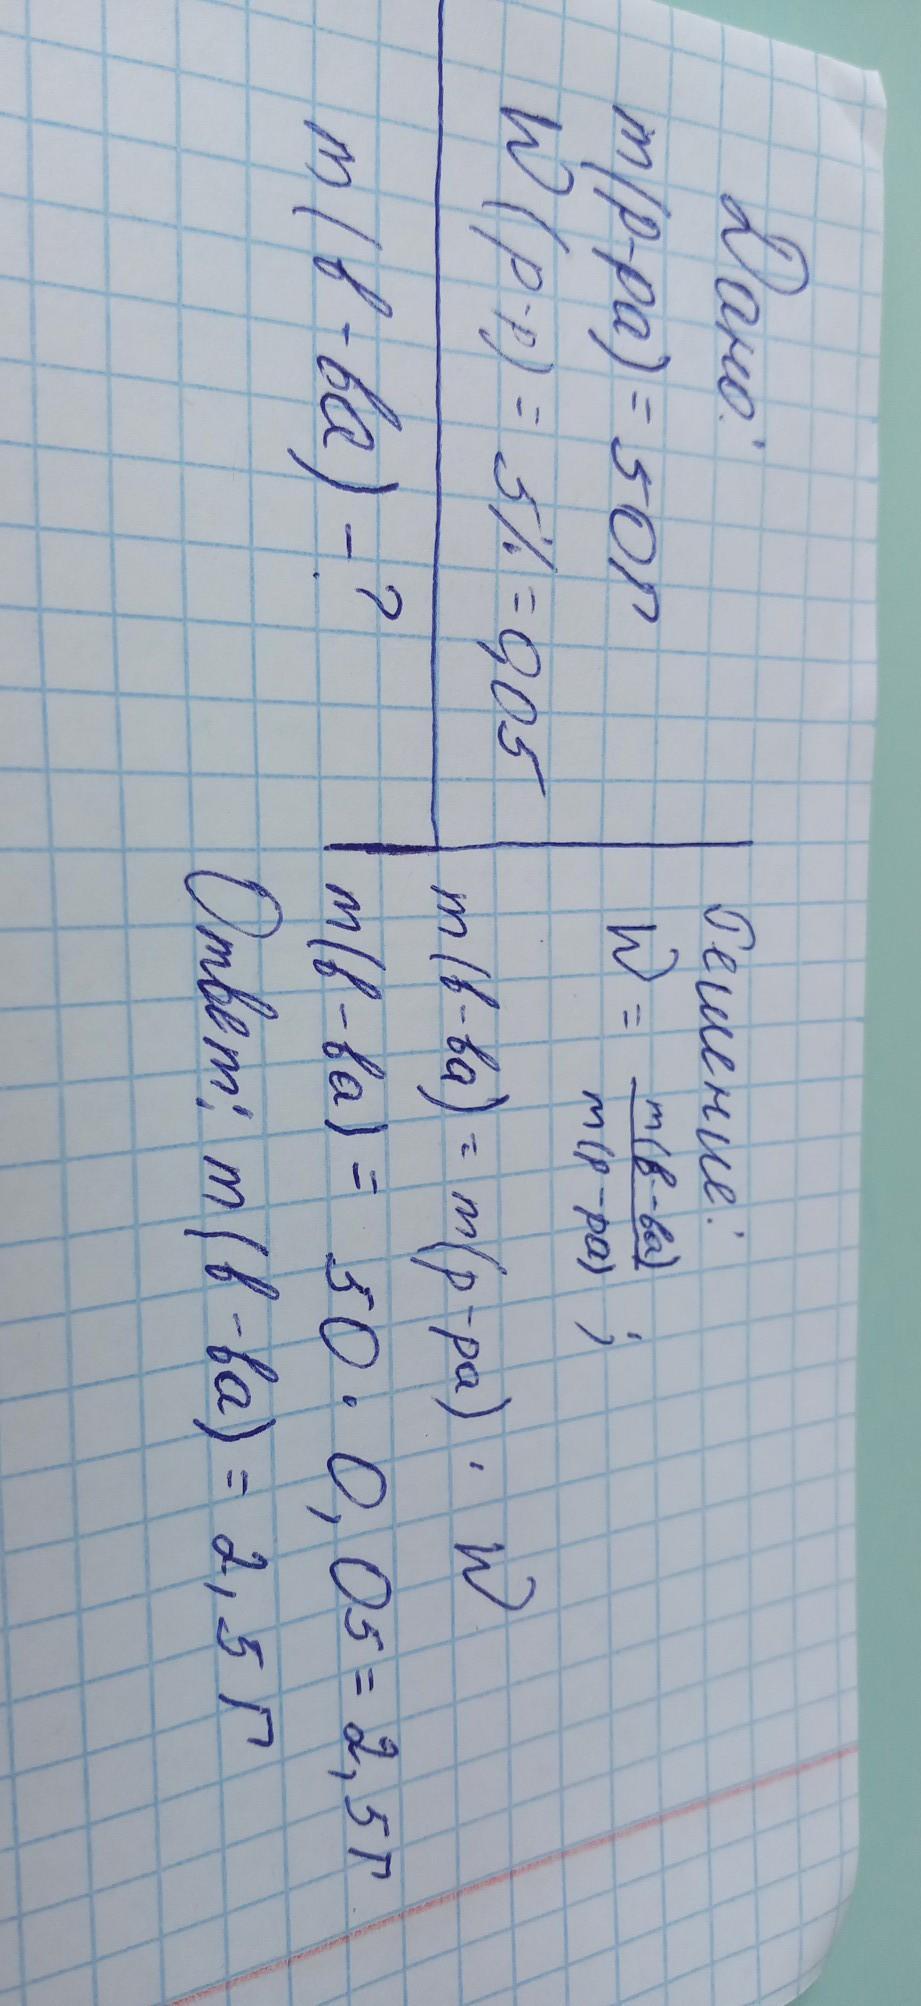 Дано:
m(р-ра) = 50г
W(р-р) = 5% = 0,05
m(в-ва) - ?
Решение:
W = m(в-ва)
m(р-ра) ;
m(в-ва) = m(р-ра) · W
m(в-ва) = 50 · 0,05 = 2,5г
Ответ: m(в-ва) = 2,5г